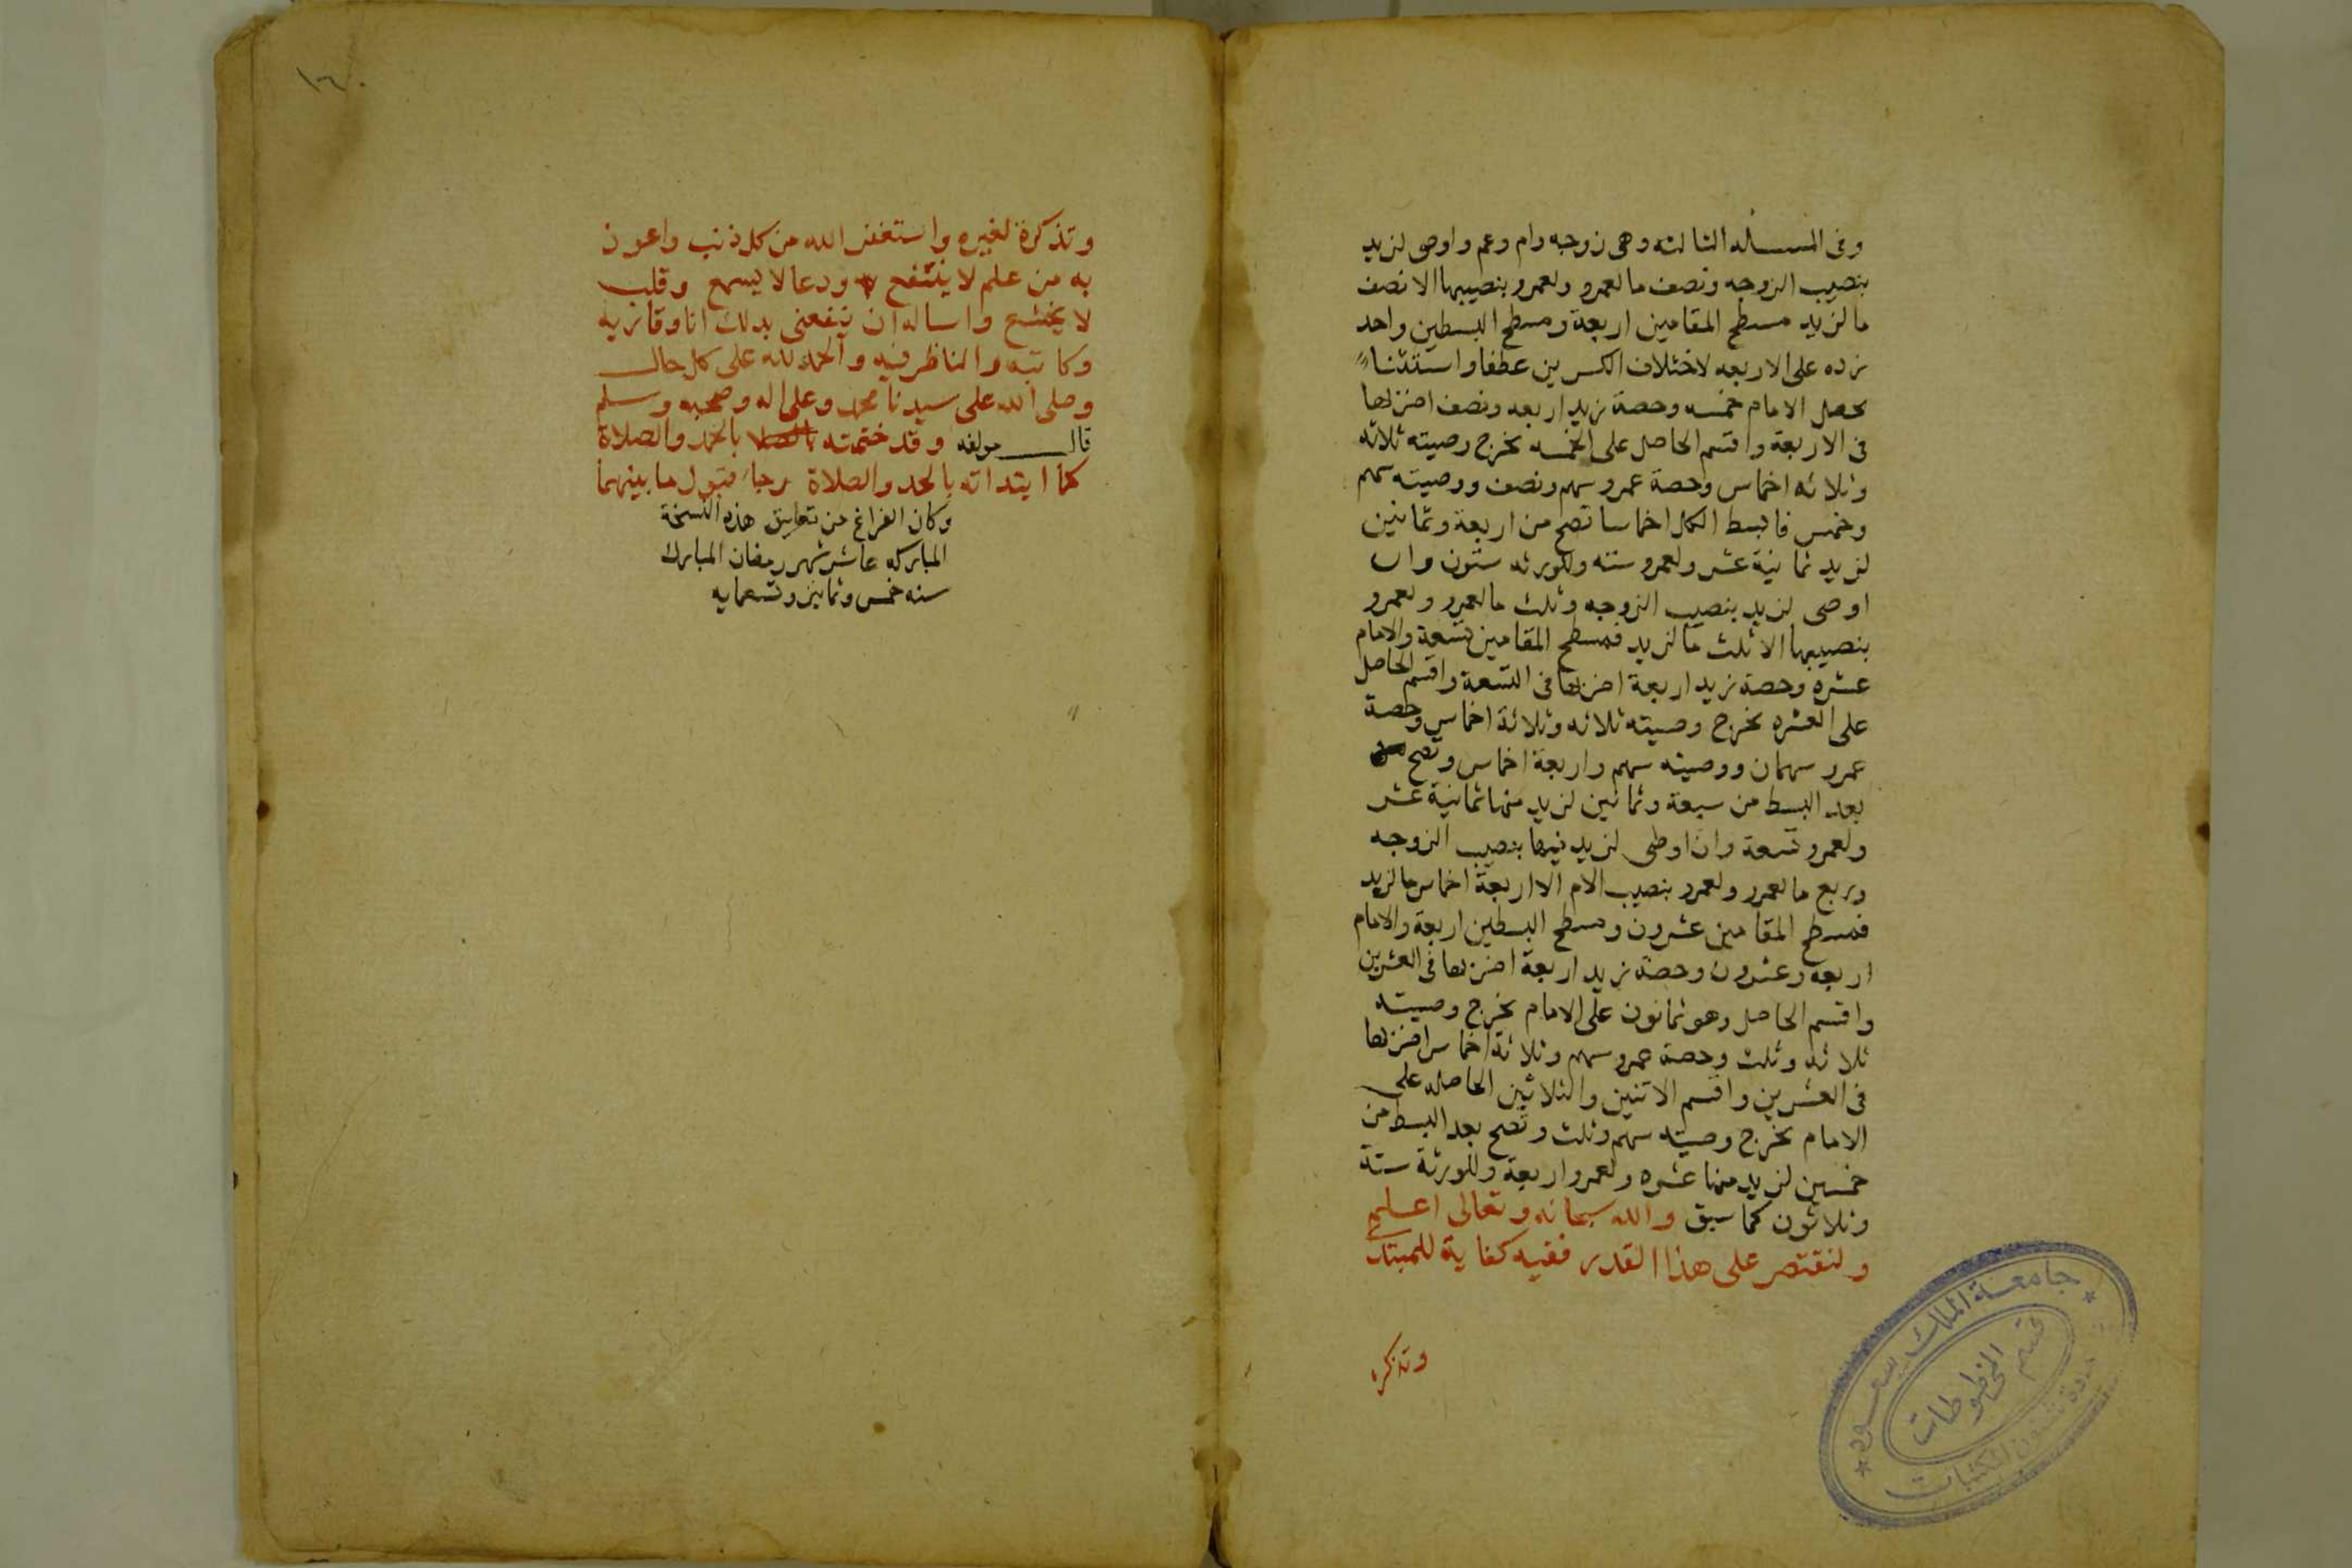 وفى المسـاله الثالثه وهى زوجه وام وعم واوصى لزيد
بنصيب الزوجه ونصف ما لعمرو ولعمرو بنصيبها الا نصف
ما لزيد مسطح المقامين اربعة ومسطح البسطين واحد
زده على الاربعه لاختلاف الكسرين عطفا واستثنا
يحصل الامام خمسه وحصة زيد اربعه ونصف اضربها
فى الاربعة واقسم الحاصل على الخمسه يخرج وصيته ثلاثه
وثلاثه اخماس وحصة عمرو سهم ونصف ووصيته سهم
وخمس فابسط الكل اخماسا تصح من اربعة وثمانين
لزيد ثمانية عشر ولعمرو سته وللورثه ستون وان
اوصى لزيد بنصيب الزوجه وثلث ما لعمرو ولعمرو
بنصيبها الا ثلث ما لزيد فمسطح المقامين تسعة والامام
عشره وحصة زيد اربعة اضربها فى التسعة واقسم الحاصل
على العشره يخرج وصيته ثلاثه وثلاثة اخماس وحصة
عمرو سهمان ووصيته سهم واربعة اخماس وتصح
بعد البسط من سبعة وثمانين لزيد منها ثمانية عشر
ولعمرو تسعة وان اوصى لزيد فيها بنصيب الزوجه
وربع ما لعمرو ولعمرو بنصيب الام الا اربعة اخماس ما لزيد
فمسطح المقامين عشرون ومسطح البسطين اربعة والامام
اربعه وعشرون وحصة زيد اربعة اضربها فى العشرين
واقسم الحاصل وهو ثمانون على الامام يخرج وصيته
ثلاثه وثلث وحصة عمرو سهم وثلاثة اخماس اضربها
فى العشرين واقسم الاثنين والثلاثين الحاصله على
الامام يخرج وصيته سهم وثلث وتصح بعد البسط من
خمسين لزيد منها عشره ولعمرو اربعة وللورثة ستة
وثلاثون كما سبق والله سبحانه وتعالى اعلم
ولنقتصر على هذا القدر ففيه كفاية للمبتدى
وتذكره
جامعة الملك سعود
قسم المخطوطات
عمادة شئون المكتبات
١٦٠
وتذكرة لغيره واستغفر الله من كل ذنب واعوذ
به من علم لا ينتفع ودعا لا يسمع وقلب
لا يخشع واساله ان ينفعنى بذلك انا وقاريه
وكاتبه والناظر فيه والحمد لله على كل حال
وصلى الله على سيدنا محمد وعلى اله وصحبه وسلم
قال مولفه وقد ختمته بالحمد والصلاة
كما ابتداته بالحمد والصلاة رجاء قبول ما بينهما
وكان الفراغ من تعليق هذه النسخة
المباركه عاشر شهر رمضان المبارك
سنه خمس وثمانين وتسعمايه